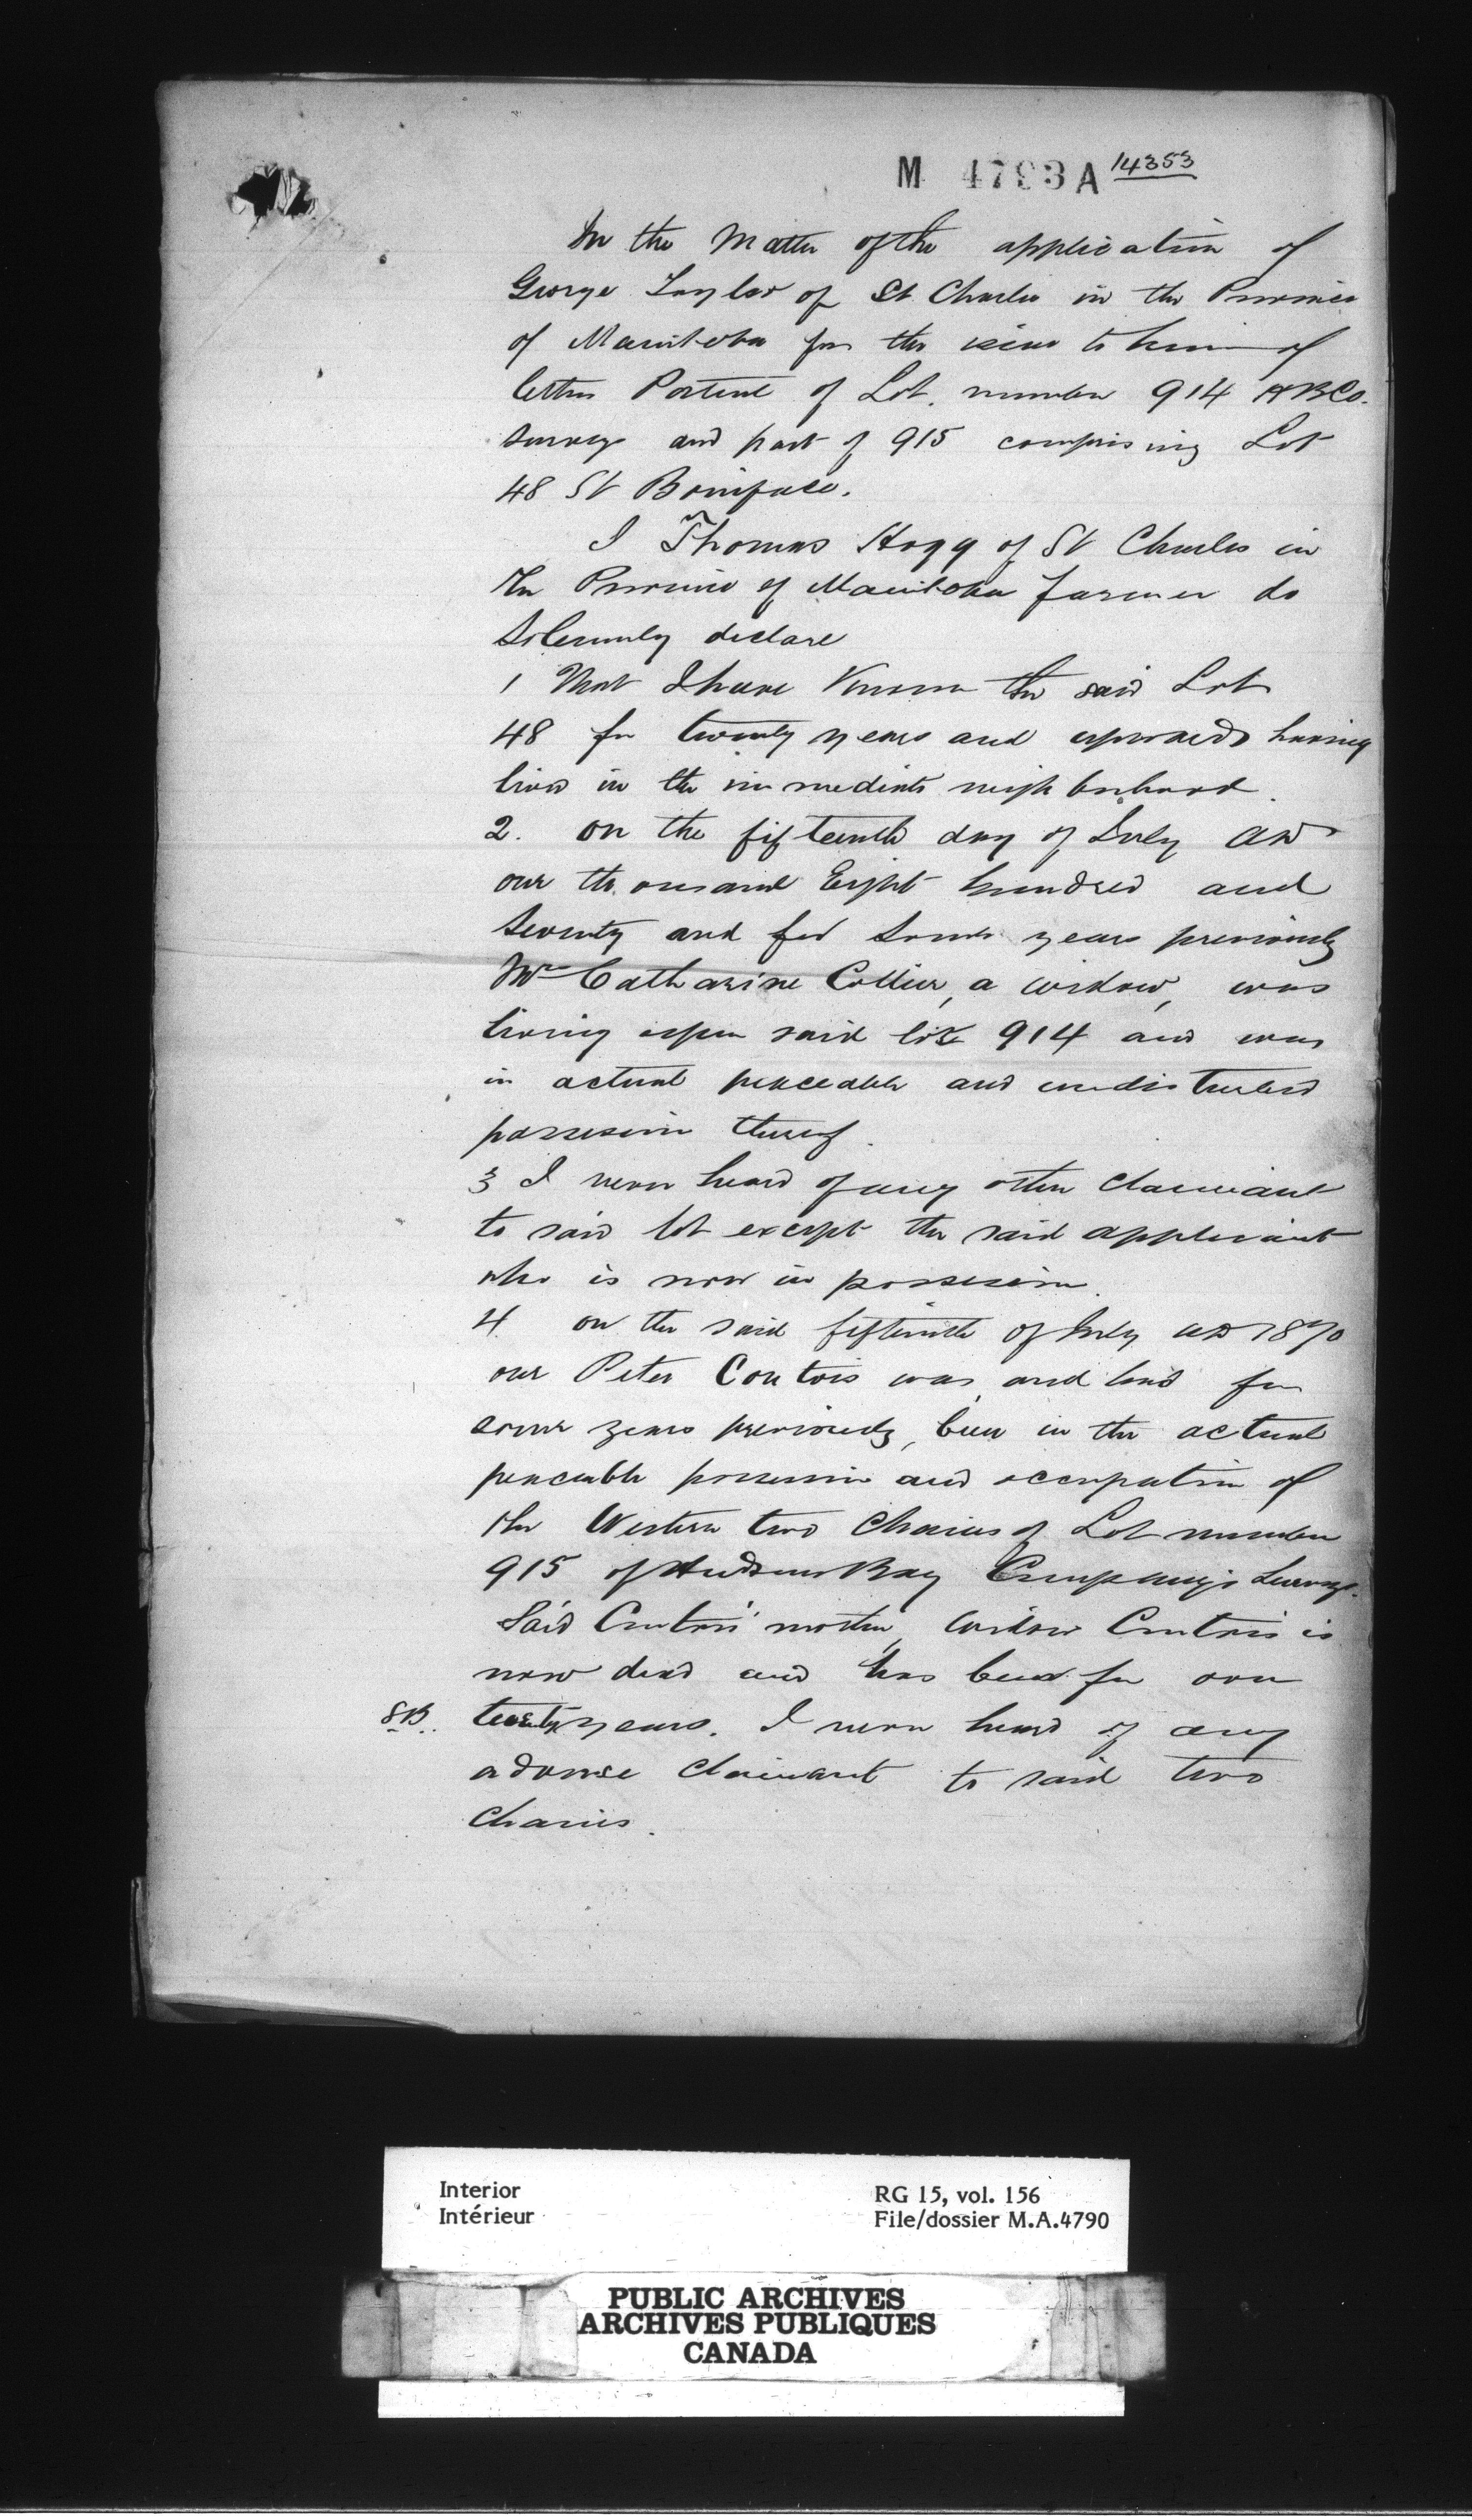 M 4793 A 14353
In the Matter of the application of
George Taylor of St Charles in the Province
of Manitoba for the issue to him of
letters Patent of Lot. number 914 HBCo.
survey and part of 915 comprising Lot
48 St Boniface.
I Thomas Hogg of St Charles in
the Province of Manitoba farmer do
Solemnly declare
1 That I have Known the said Lot
48 for twenty years and upwards having
lived in the immediate neighborhood.
2. on the fifteenth day of July AD
one thousand Eight hundred and
Seventy and for some years previously
Mrs Catharine Collier, a widow, was
living upon said lot 914 and was
in actual peaceable and undisturbed
possession thereof.
3 I never heard of any other claimant
to said lot except the said applicant
who is now in possession.
4 on the said fifteenth of July AD 1870
one Peter Contois was, and had for
some years previously, been in the actual
peaceable possession and occupation of
the Western two Chains of Lot number
915 of Hudsons Bay Company's Survey.
Said Contois' mother, Widow Contois is
now dead and has been for over
8B. twenty years. I never heard of any
adverse claimant to said two
chains.
Interior
Intérieur
RG 15, vol. 156
File/dossier M.A.4790
PUBLIC ARCHIVES
ARCHIVES PUBLIQUES
CANADA